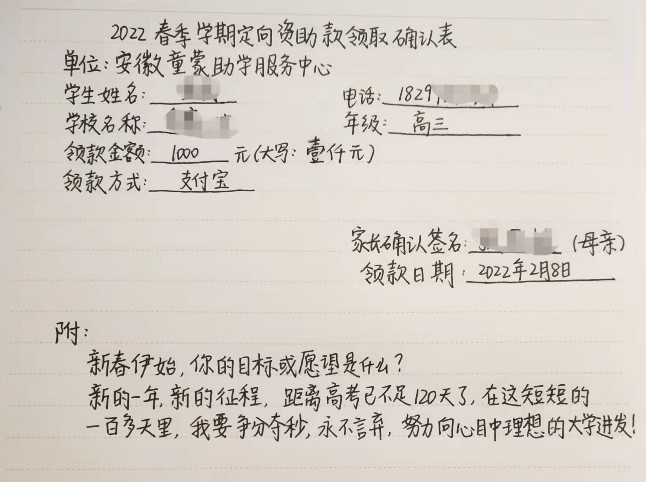 2022春季学期定向资助款领取确认表
单位:安徽童蒙助学服务中心
学生姓名:
电话:1829
学校名称:
年级:高三
领款金额:1000元(大写:壹仟元)
领款方式:支付宝
家长确认签名: (母亲)
领款日期:2022年2月8日
附:
新春伊始,你的目标或愿望是什么?
新的一年,新的征程,距离高考已不足120天了,在这短短的
一百多天里,我要争分夺秒,永不言弃,努力向心目中理想的大学进发!